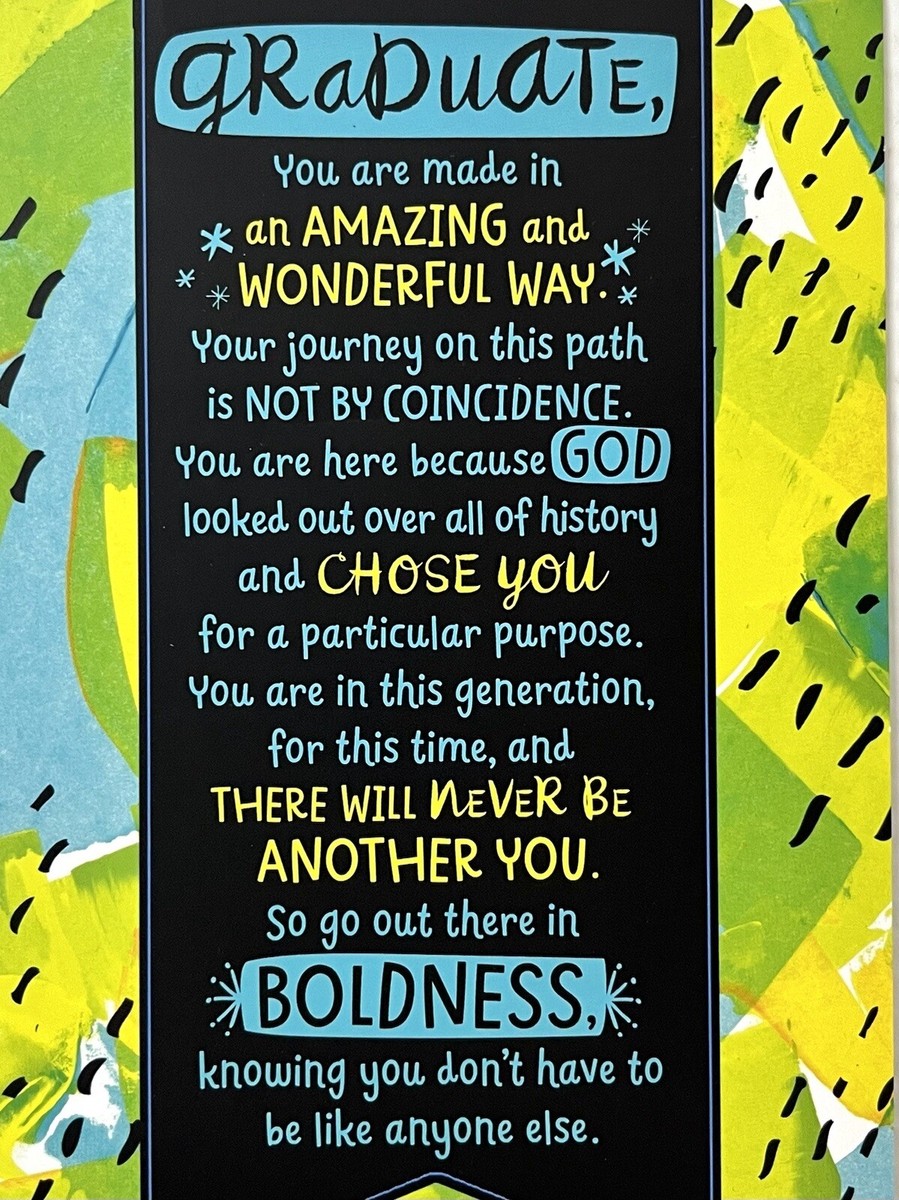 GRaDuaTE,
You are made in
an AMAZING and
WONDERFUL WAY.
Your journey on this path
is NOT BY COINCIDENCE.
You are here because GOD
looked out over all of history
and CHOSE YOU
for a particular purpose.
You are in this generation,
for this time, and
THERE WILL NEVER BE
ANOTHER YOU.
So go out there in
BOLDNESS,
knowing you don't have to
be like anyone else.